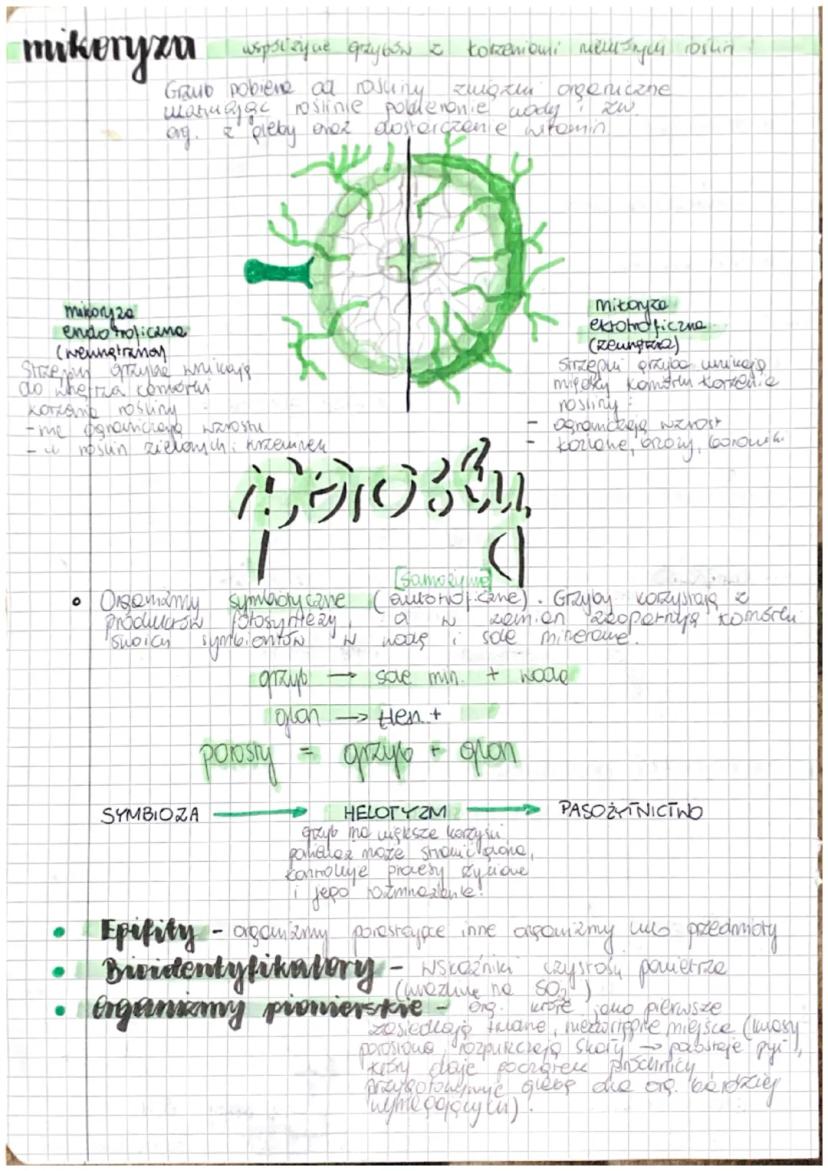 mikoryza współżycie grzybów z korzeniami niektórych roślin
Grzyb pobiera od rośliny związki organiczne
ułatwiając roślinie pobieranie wody i zw.
org. z gleby oraz dostarczenie witamin
mikoryza
endotroficzna
(wewnętrzna)
Strzępki grzyba wnikają
do wnętrza komórki
korzenia rośliny
- nie ograniczają wzrostu
- u roślin zielonych i krzewinek
mikoryza
ektotroficzna
(zewnętrzna)
Strzępki grzyba wnikają
między komórki korzenia
rośliny:
- ograniczają wzrost
- brzozy, borowik
[samożywne]
Organizmy symbiotyczne (autotroficzne). Grzyby korzystają z
produktów fotosyntezy, a w zamian zaopatrują komórki
swoich symbiontów w wodę i sole mineralne.
grzyb → sole min. + woda
glon → tlen +
porosty = grzyb + glon
SYMBIOZA → HELOTYZM → PASOŻYTNICTWO
grzyb ma większe korzyści
ponieważ może strawić glona,
kontroluje procesy życiowe
i jego rozmnażanie.
Epifity - organizmy porastające inne organizmy lub przedmioty
Bioidentyfikatory - wskaźniki czystości powietrza
(wrażliwe na SO₂)
Organizmy pionierskie - org. które jako pierwsze
zasiedlają miejsca (kwasy
porostowe rozpuszczają skały → powstaje pył,
który daje początek próchnicy
glebę dla org. bardziej
wymagających).